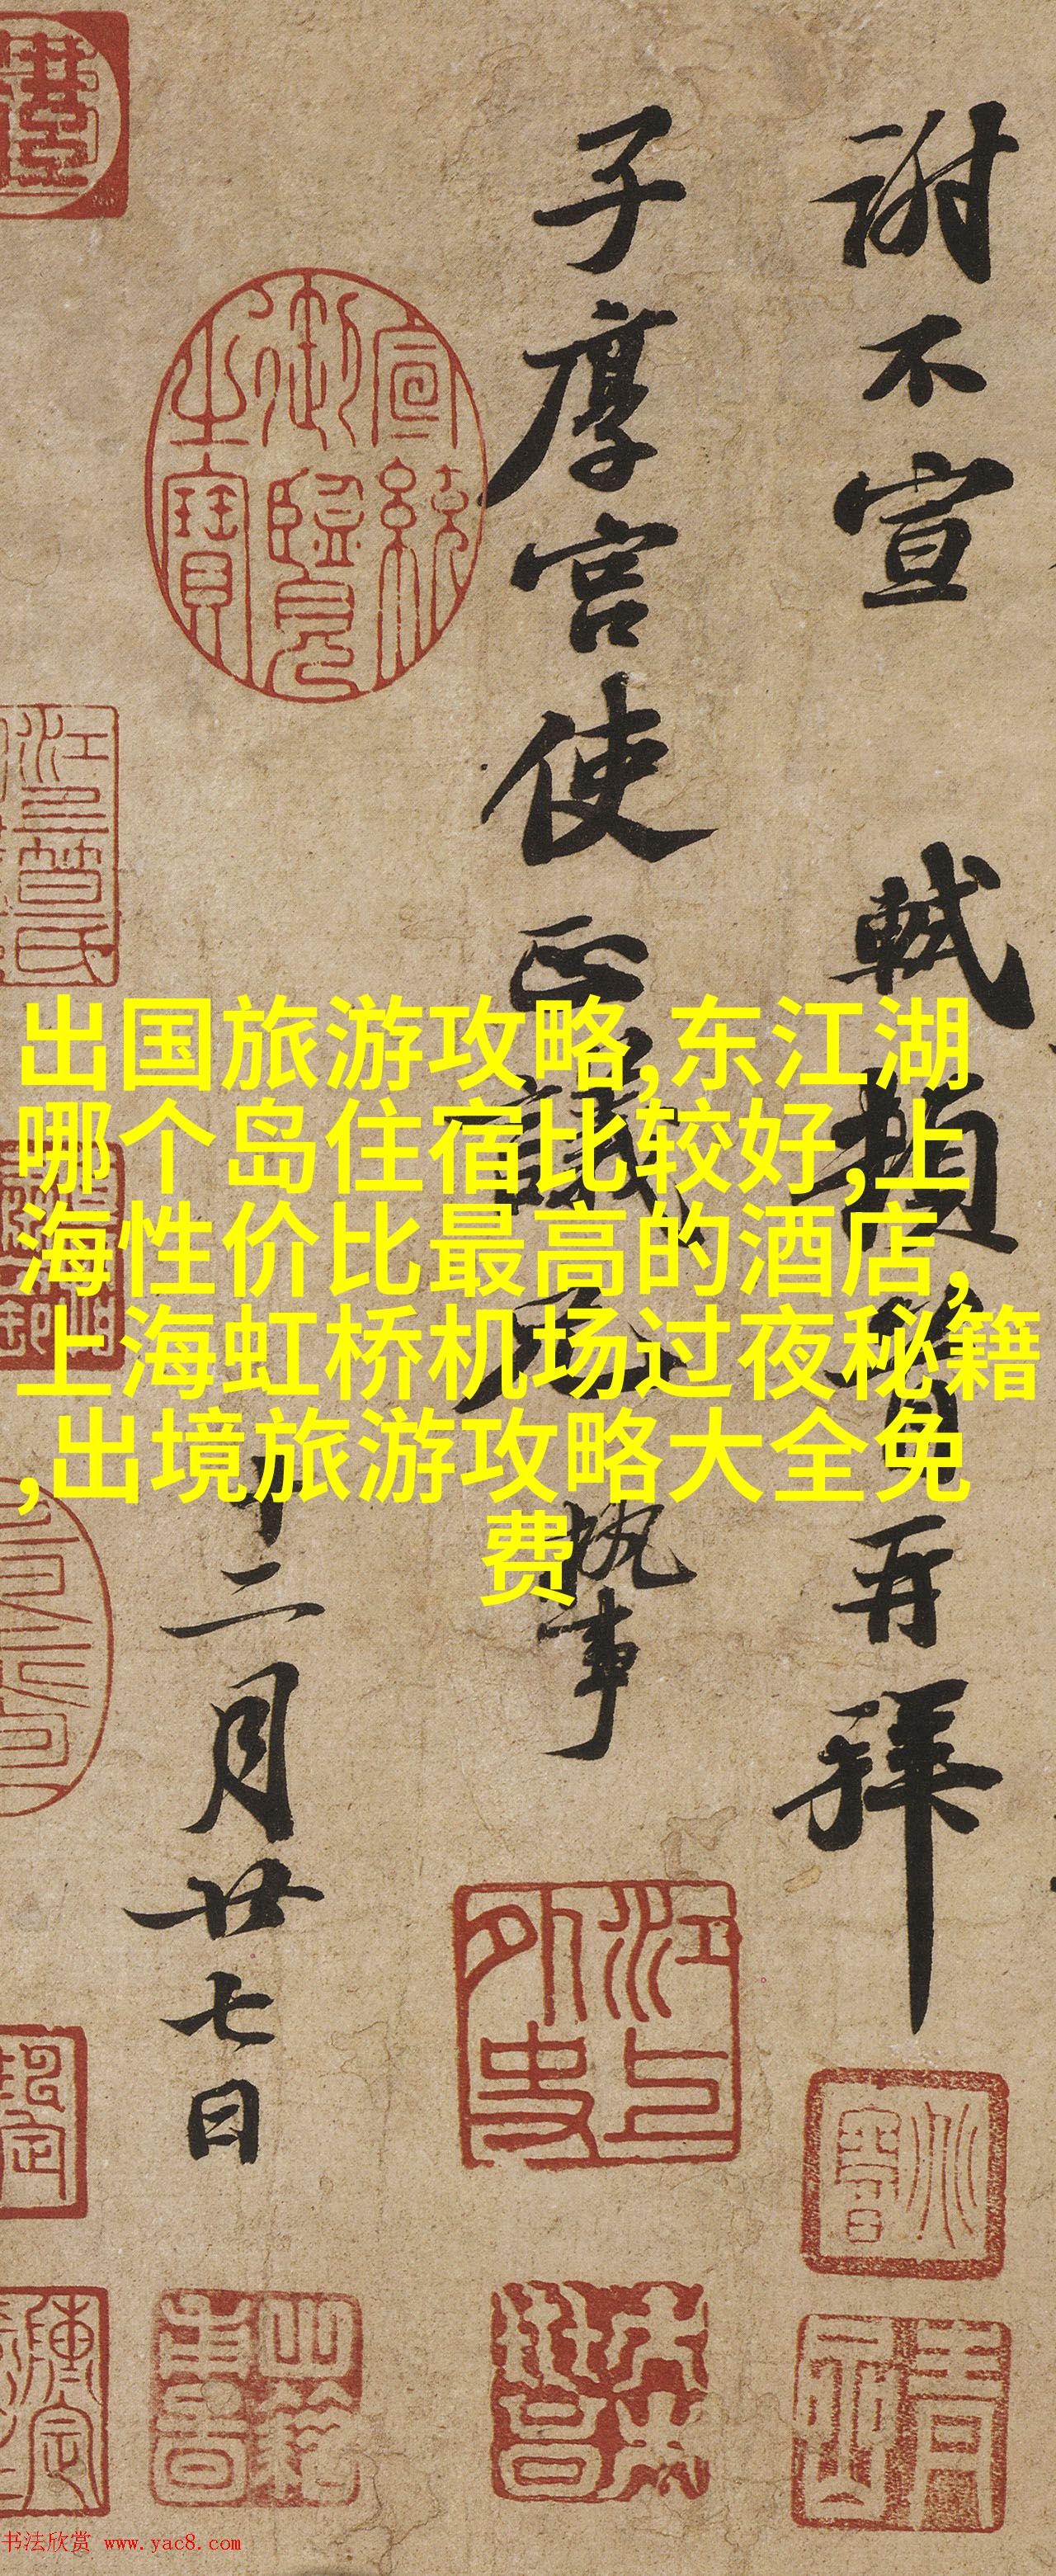 謝不宣 軾頓首再拜
子厚宫使正議兄執事
十二月廿七日
出国旅游攻略,东江湖
哪个岛住宿比较好,上
海性价比最高的酒店,
上海虹桥机场过夜秘籍
,出境旅游攻略大全免
费
宣統御覽之寶
江上外史
书法欣赏 www.yac8.com